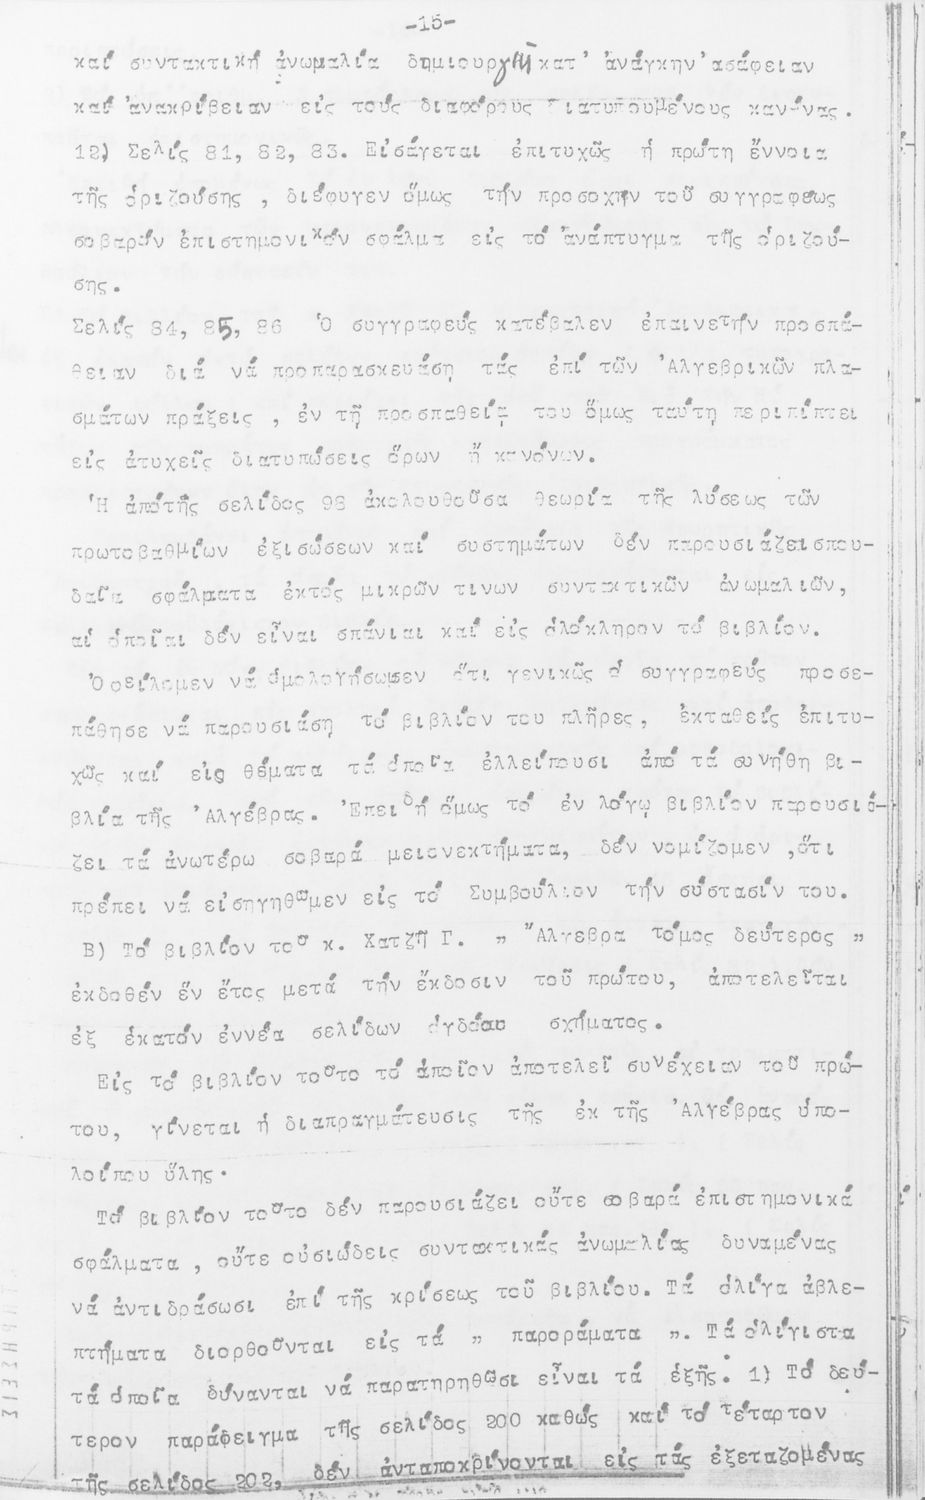 -15-
καί συντακτική ἀνωμαλία δημιουργῇ κατ' ἀνάγκην ἀσάφειαν
καί ἀνακρίβειαν εἰς τούς διαφόρους διατυπουμένους κανόνας.
12) Σελίς 81, 82, 83. Εἰσάγεται ἐπιτυχῶς ἡ πρώτη ἔννοια
τῆς ὁριζούσης , διέφυγεν ὅμως τήν προσοχήν τοῦ συγγραφέως
σοβαρόν ἐπιστημονικόν σφάλμα εἰς τό ἀνάπτυγμα τῆς ὁριζού-
σης.
Σελίς 84, 85, 86 Ὁ συγγραφεύς κατέβαλεν ἐπαινετήν προσπά-
θειαν διά νά προπαρασκευάσῃ τάς ἐπί τῶν Ἀλγεβρικῶν πλα-
σμάτων πράξεις , ἐν τῇ προσπαθείᾳ του ὅμως ταύτῃ περιπίπτει
εἰς ἀτυχεῖς διατυπώσεις ὅρων ἤ κανόνων.
Ἡ ἀπότῆς σελίδος 98 ἀκολουθοῦσα θεωρία τῆς λύσεως τῶν
πρωτοβαθμίων ἐξισώσεων καί συστημάτων δέν παρουσιάζεισπου-
δαῖα σφάλματα ἐκτός μικρῶν τινων συντακτικῶν ἀνωμαλιῶν,
αἱ ὁποῖαι δέν εἶναι σπάνιαι καί εἰς ὁλόκληρον τό βιβλίον.
Ὀφείλομεν νά ὁμολογήσωμεν ὅτι γενικῶς ὁ συγγραφεύς προσε-
πάθησε νά παρουσιάσῃ τό βιβλίον του πλῆρες, ἐκταθείς ἐπιτυ-
χῶς καί εἰς θέματα τά ὁποῖα ἐλλείπουσι ἀπό τά συνήθη βι-
βλία τῆς Ἀλγέβρας. Ἐπειδή ὅμως τό ἐν λόγῳ βιβλίον παρουσιά-
ζει τά ἀνωτέρω σοβαρά μειονεκτήματα, δέν νομίζομεν ,ὅτι
πρέπει νά εἰσηγηθῶμεν εἰς τό Συμβούλιον τήν σύστασίν του.
Β) Τό βιβλίον τοῦ κ. Χατζῆ Γ. „ Ἄλγεβρα τόμος δεύτερος „
ἐκδοθέν ἕν ἔτος μετά τήν ἔκδοσιν τοῦ πρώτου, ἀποτελεῖται
ἐξ ἑκατόν ἐννέα σελίδων ὀγδόου σχήματος.
Εἰς τό βιβλίον τοῦτο τό ὁποῖον ἀποτελεῖ συνέχειαν τοῦ πρώ-
του, γίνεται ἡ διαπραγμάτευσις τῆς ἐκ τῆς Ἀλγέβρας ὑπο-
λοίπου ὕλης.
Τό βιβλίον τοῦτο δέν παρουσιάζει οὔτε σοβαρά ἐπιστημονικά
σφάλματα , οὔτε οὐσιώδεις συντακτικάς ἀνωμαλίας δυναμένας
νά ἀντιδράσωσι ἐπί τῆς κρίσεως τοῦ βιβλίου. Τά ὀλίγα ἀβλε-
πτήματα διορθοῦνται εἰς τά „ παροράματα „. Τά ὀλίγιστα
τά ὁποῖα δύνανται νά παρατηρηθῶσι εἶναι τά ἑξῆς. 1) Τό δεύ-
τερον παράδειγμα τῆς σελίδος 200 καθώς καί τό τέταρτον
τῆς σελίδος 202, δέν ἀνταποκρίνονται εἰς τάς ἐξεταζομένας